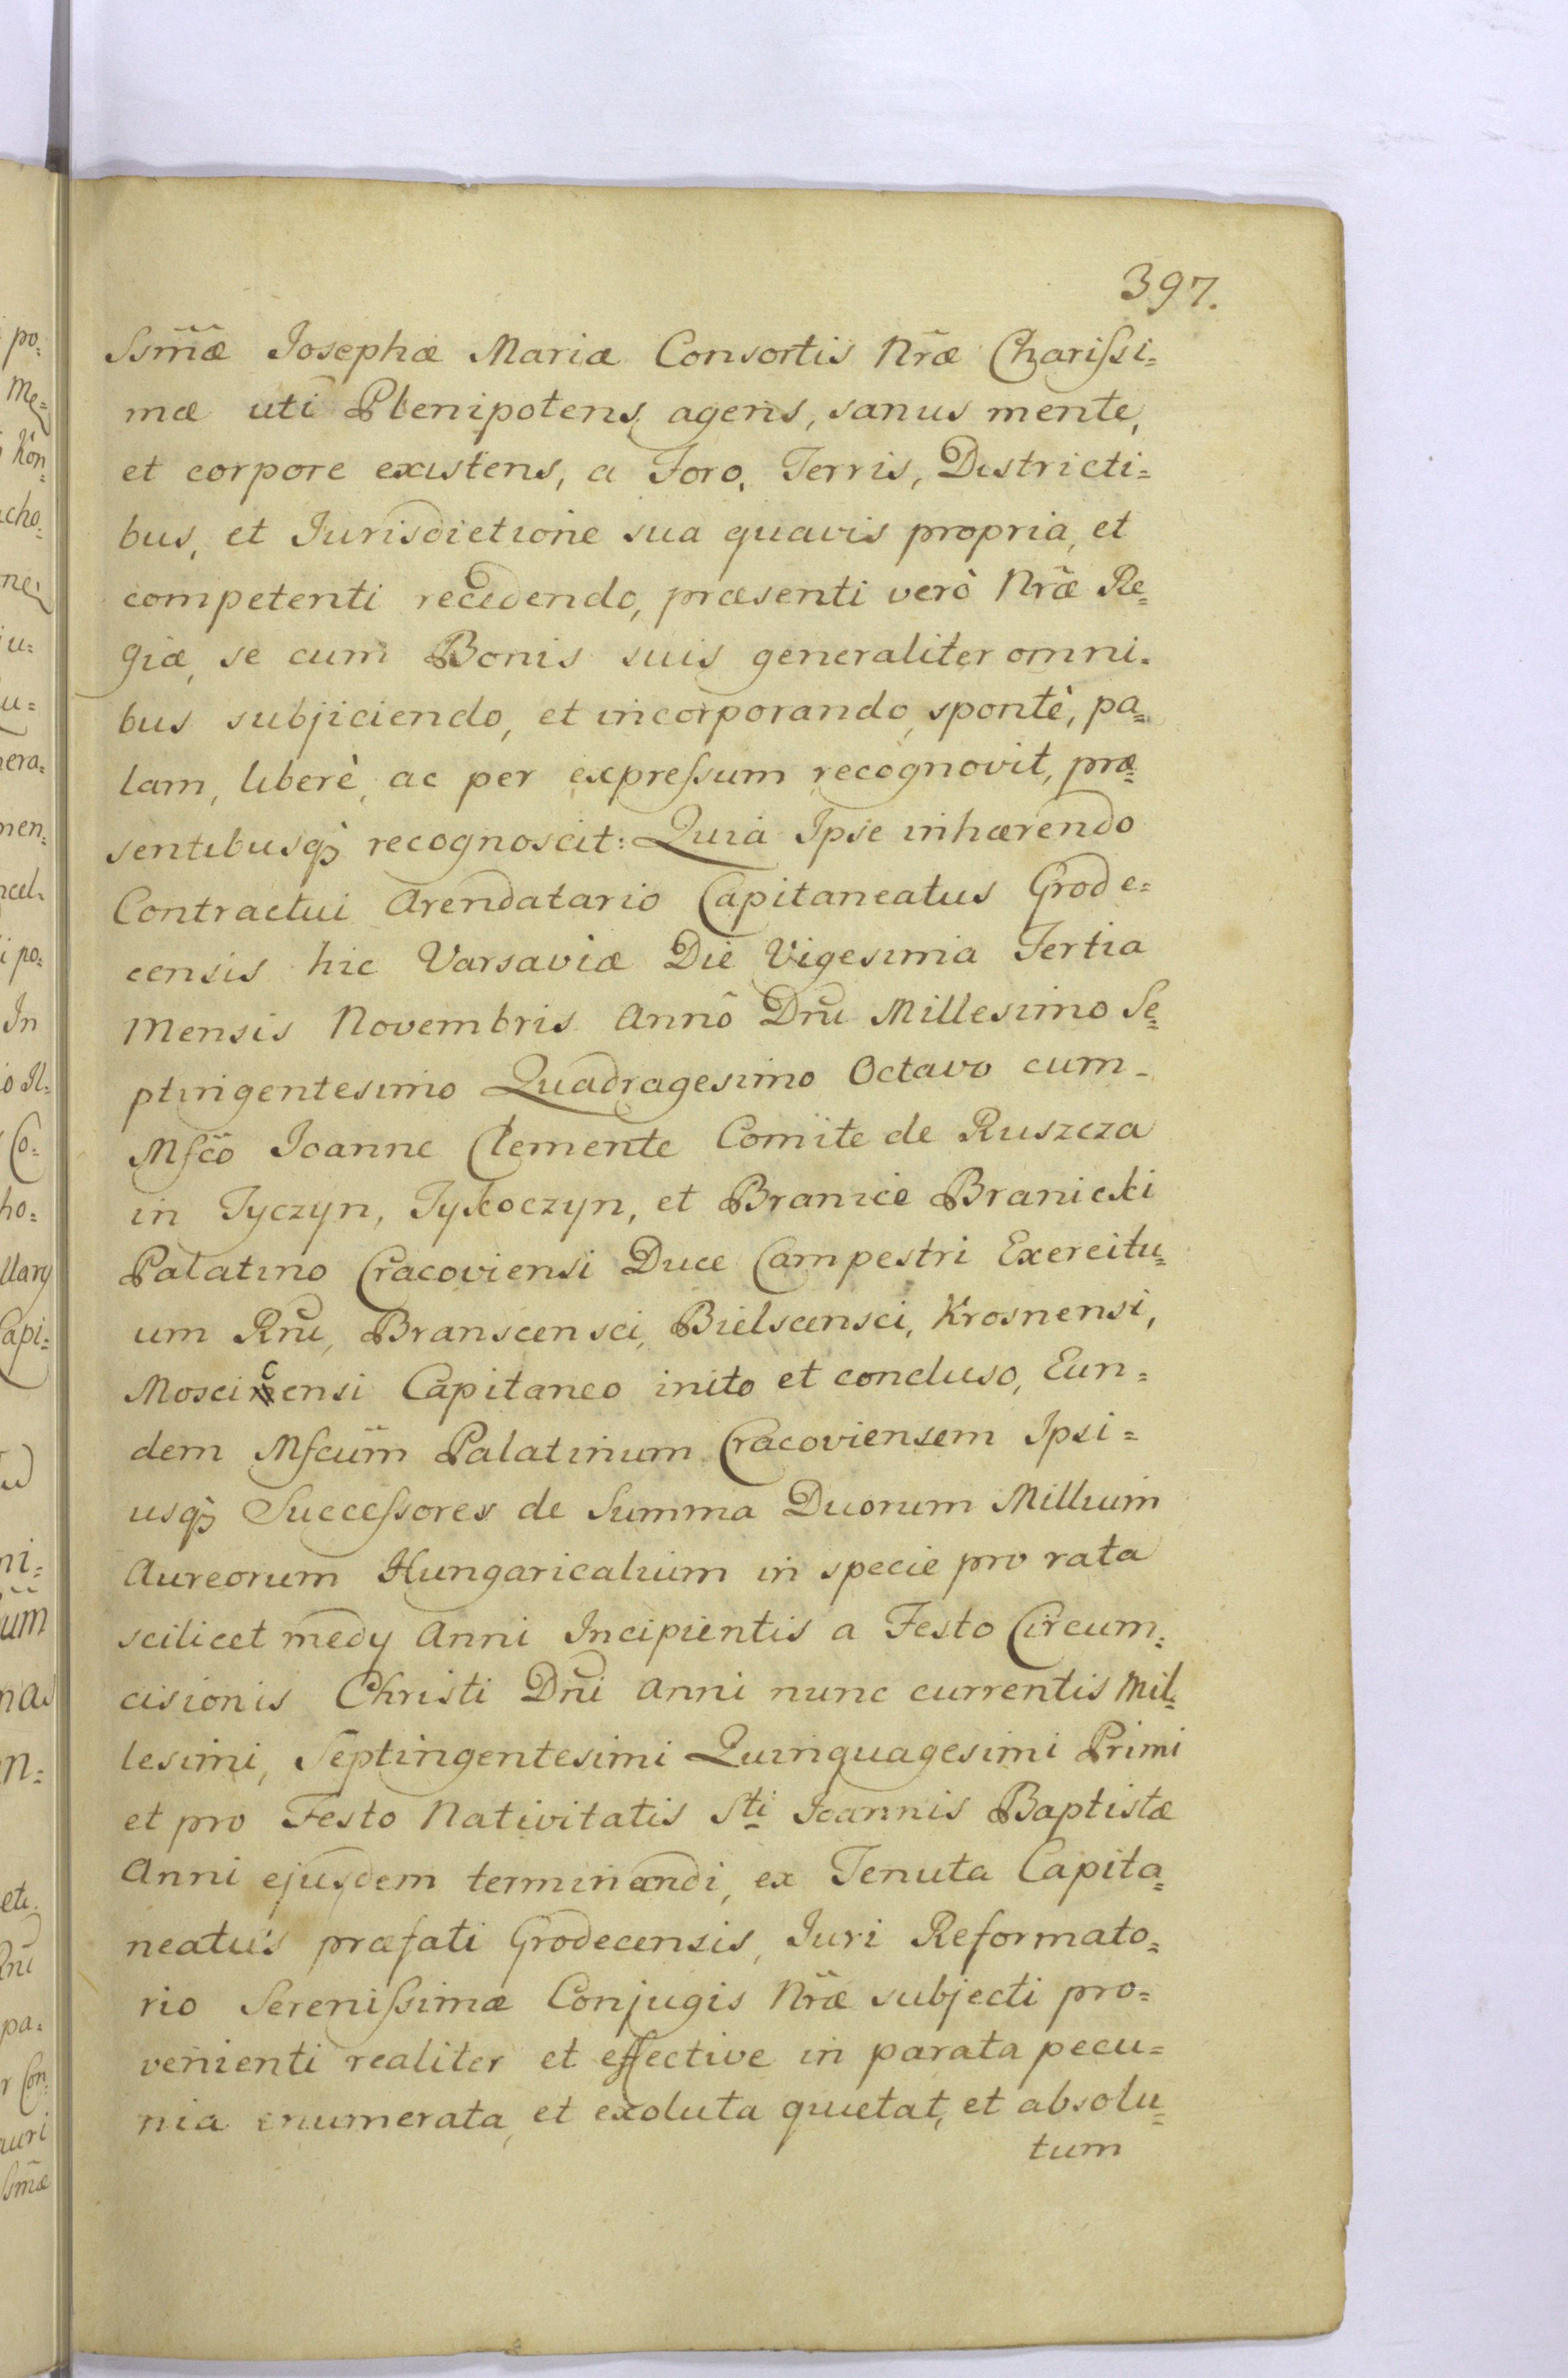 397.
Ssm̃æ Josephæ Mariæ Consortis Nr̃æ Chariſsi=
mæ uti Plenipotens agens, sanus mente,
et corpore existens, a Foro, Terris, Districti=
bus, et Jurisdictione sua quavis propria, et
competenti recedendo, præsenti verò Nr̃æ Re=
giæ, se cum Bonis suis generaliter omni=
bus subjiciendo, et incorporando, spontè, pa=
lam, liberè, ac per expreſsum recognovit, præ=
sentibusq̃ recognoscit: Quia Ipse inhærendo
Contractui Arendatario Capitaneatus Grode=
censis hic Varsaviæ Die Vigesima Tertia
Mensis Novembris Annô Dñi Millesimo Se=
ptingentesimo Quadragesimo Octavo cum
Mfc̃o Joanne Clemente Comite de Ruszcza
in Tyczyn, Tykoczyn, et Branice Branicki
Palatino Cracoviensi Duce Campestri Exercitu=
um Rñi, Branscensci, Bielscensci, Krosnensi,
Moscicensi Capitaneo inito et concluso, Eun=
dem Mfcũm Palatinum Cracoviensem Ipsi=
usq̃ Succeſsores de Summa Duorum Millium
Aureorum Hungaricalium in specie pro rata
scilicet medy Anni Incipientis a Festo Circum=
cisionis Christi Dñi Anni nunc currentis Mil=
lesimi, Septingentesimi Quinquagesimi Primi
et pro Festo Nativitatis Sti Joannis Baptistæ
Anni ejusdem terminandi, ex Tenuta Capita=
neatus præfati Grodecensis, Juri Reformato=
rio Sereniſsimæ Conjugis Nr̃æ subjecti pro=
venienti realiter et effective in parata pecu=
nia enumerata, et exoluta quietat, et absolu=
tum